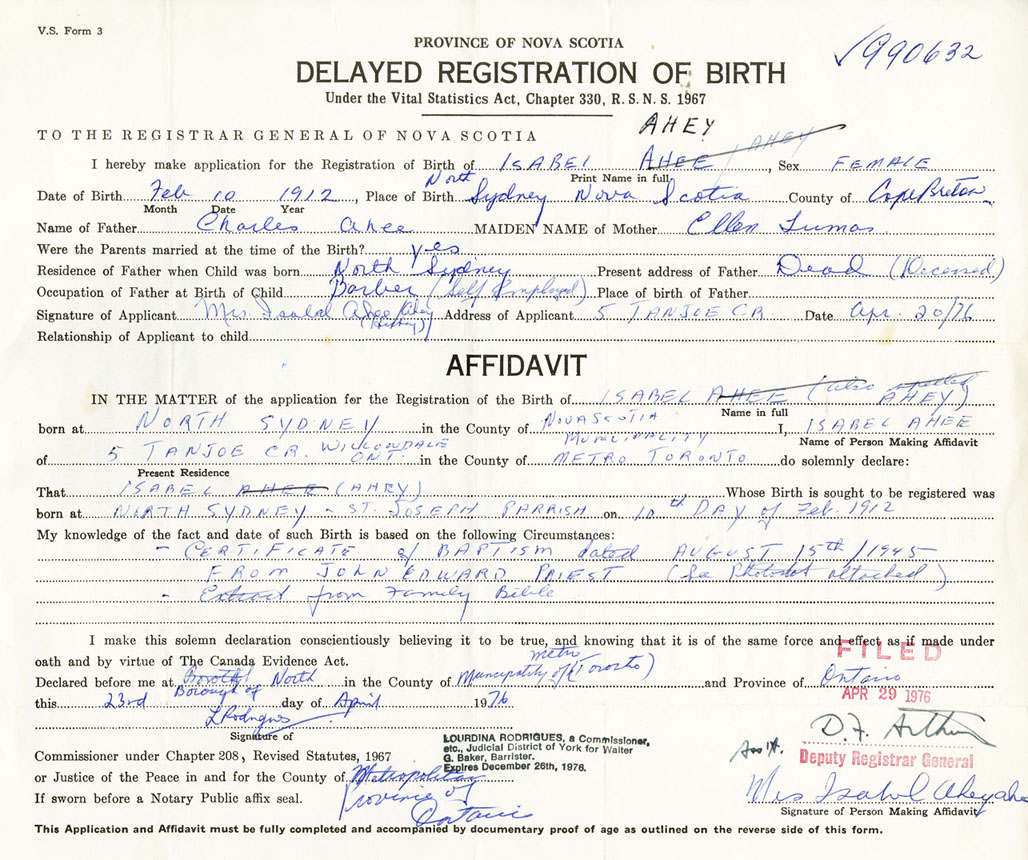 V.S. Form 3
√990632
PROVINCE OF NOVA SCOTIA
DELAYED REGISTRATION OF BIRTH
Under the Vital Statistics Act, Chapter 330, R.S.N.S. 1967
AHEY
TO THE REGISTRAR GENERAL OF NOVA SCOTIA
I hereby make application for the Registration of Birth of ISABEL AHEE / AHEY, Sex FEMALE
Print Name in full
Date of Birth Feb 10 1912, Place of Birth North Sydney Nova Scotia County of Cape Breton
Month Date Year
Name of Father Charles Ahee MAIDEN NAME of Mother Ellen Lumas
Were the Parents married at the time of the Birth? yes
Residence of Father when Child was born North Sydney Present address of Father Dead (Deceased)
Occupation of Father at Birth of Child Barber (Self Employed) Place of birth of Father
Signature of Applicant Mrs. Isabel Ahee Address of Applicant 5 TANJOE CR. Date Apr. 20/76
Relationship of Applicant to child
AFFIDAVIT
IN THE MATTER of the application for the Registration of the Birth of ISABEL AHEE (also spelled AHEY)
Name in full
born at NORTH SYDNEY in the County of NOVA SCOTIA I, ISABEL AHEE
MUNICIPALITY
Name of Person Making Affidavit
of 5 TANJOE CR. WILLOWDALE ONT. in the County of METRO TORONTO do solemnly declare:
Present Residence
That ISABEL AHEE (AHEY) Whose Birth is sought to be registered was
born at NORTH SYDNEY - ST. JOSEPH PARRISH on 10th DAY of Feb. 1912
My knowledge of the fact and date of such Birth is based on the following Circumstances:
- CERTIFICATE of BAPTISM dated AUGUST 15th/1945
FROM JOHN EDWARD PRIEST (See Photostat attached)
- Extract from Family Bible
I make this solemn declaration conscientiously believing it to be true, and knowing that it is of the same force and effect as if made under
oath and by virtue of The Canada Evidence Act.
FILED
Declared before me at North in the County of Municipality of (Metro Toronto) and Province of Ontario
Borough of
APR 29 1976
this 23rd day of April 1976
L Rodrigues
Signature of
D.F. Arthur
Commissioner under Chapter 208, Revised Statutes, 1967
LOURDINA RODRIGUES, a Commissioner,
etc., Judicial District of York for Walter
G. Baker, Barrister.
Expires December 26th, 1976.
Deputy Registrar General
or Justice of the Peace in and for the County of Metropolitan
Province of Ontario
If sworn before a Notary Public affix seal.
Mrs Isabel
Signature of Person Making Affidavit
This Application and Affidavit must be fully completed and accompanied by documentary proof of age as outlined on the reverse side of this form.